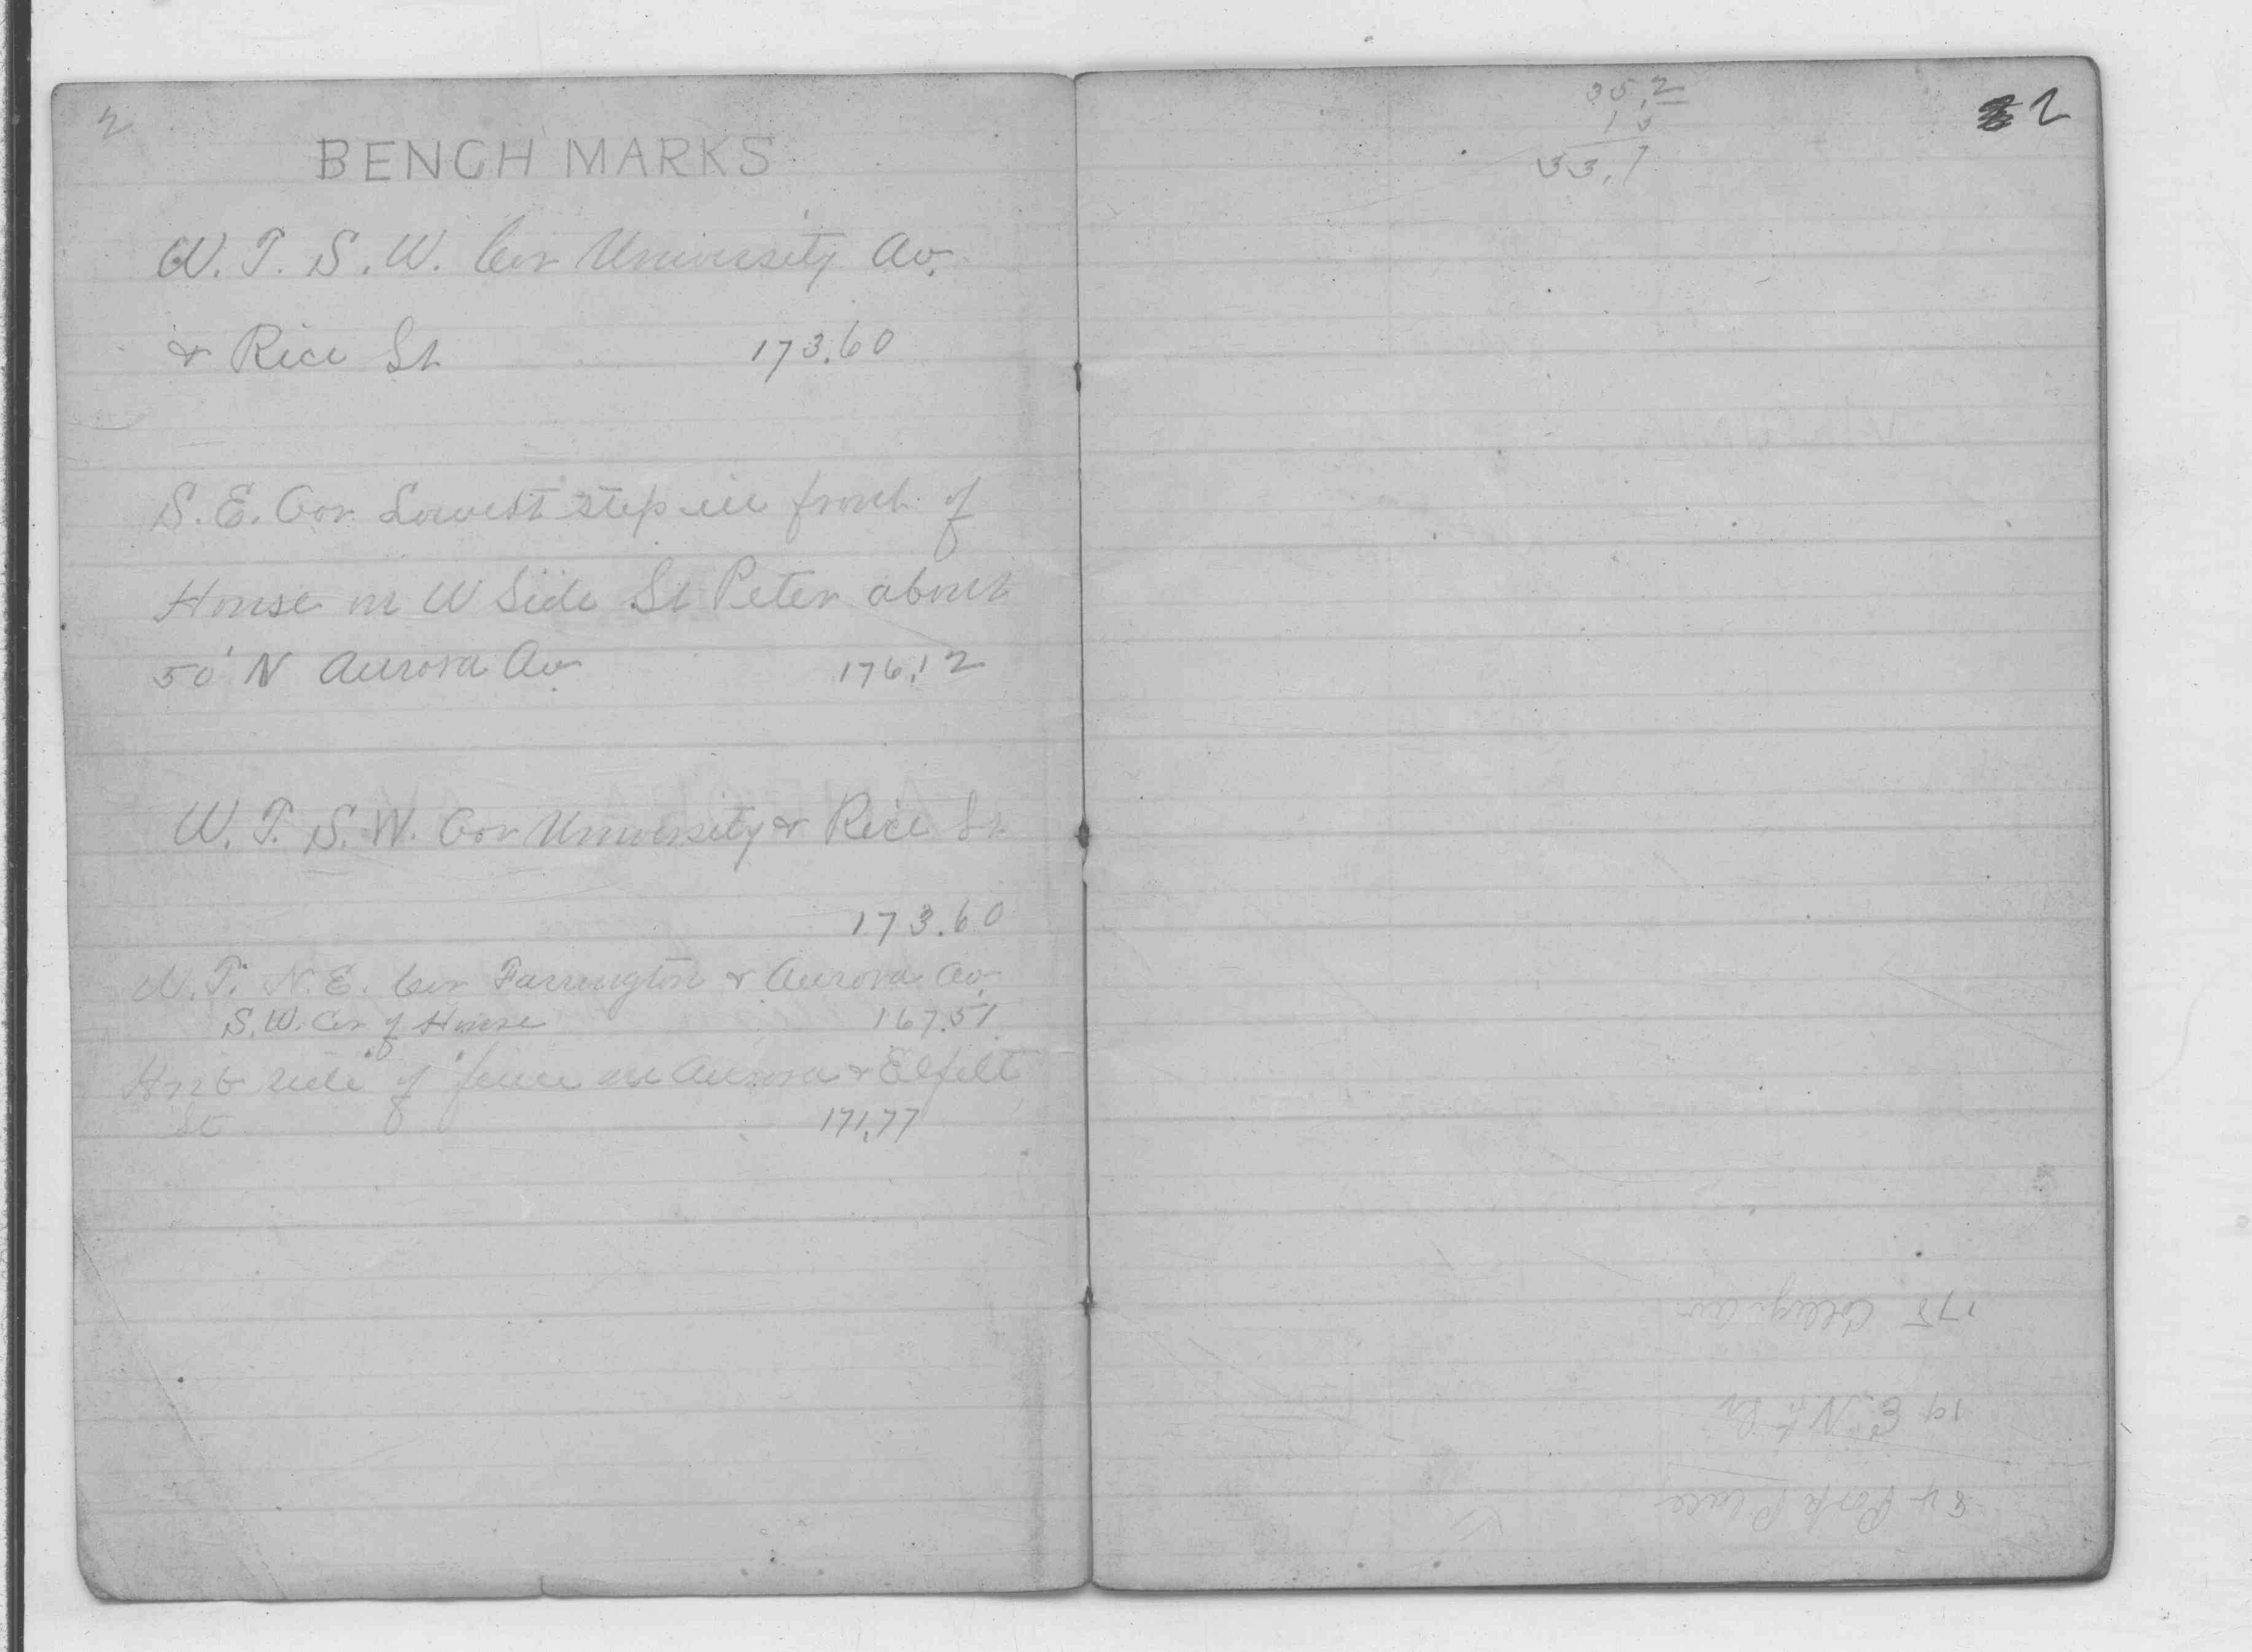 2
BENCH MARKS
W. T. S. W. Cor University Av.
& Rice St 173.60
S. E. Cor Lowest step in front of
House on W Side St Peter about
50' N Aurora Av 176.12
W. T. S. W. Cor University & Rice St
173.60
W. T. N. E. Cor Farrington & Aurora Av.
S. W. Cor of House 167.51
side of fence on Aurora & Elfelt
St 171.77
2
35.2
33.7
175 College Av
19 E.
84 Park Place